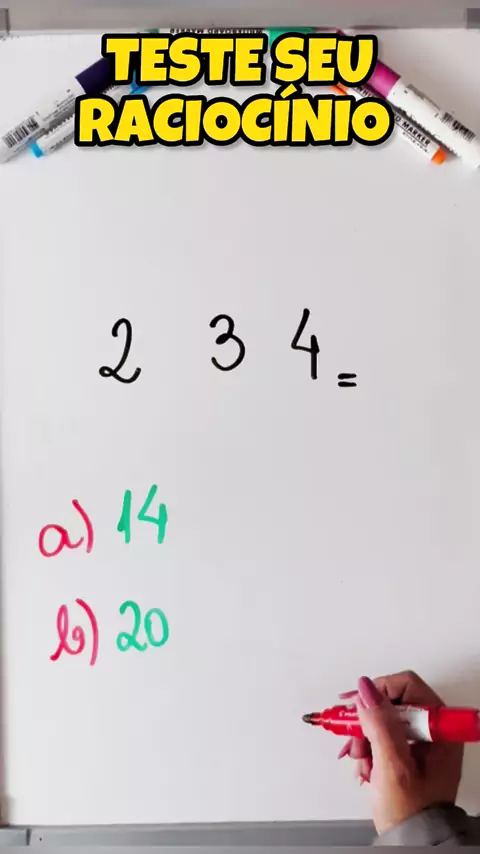 TESTE SEU
RACIOCÍNIO
2 3 4 =
a) 14
b) 20